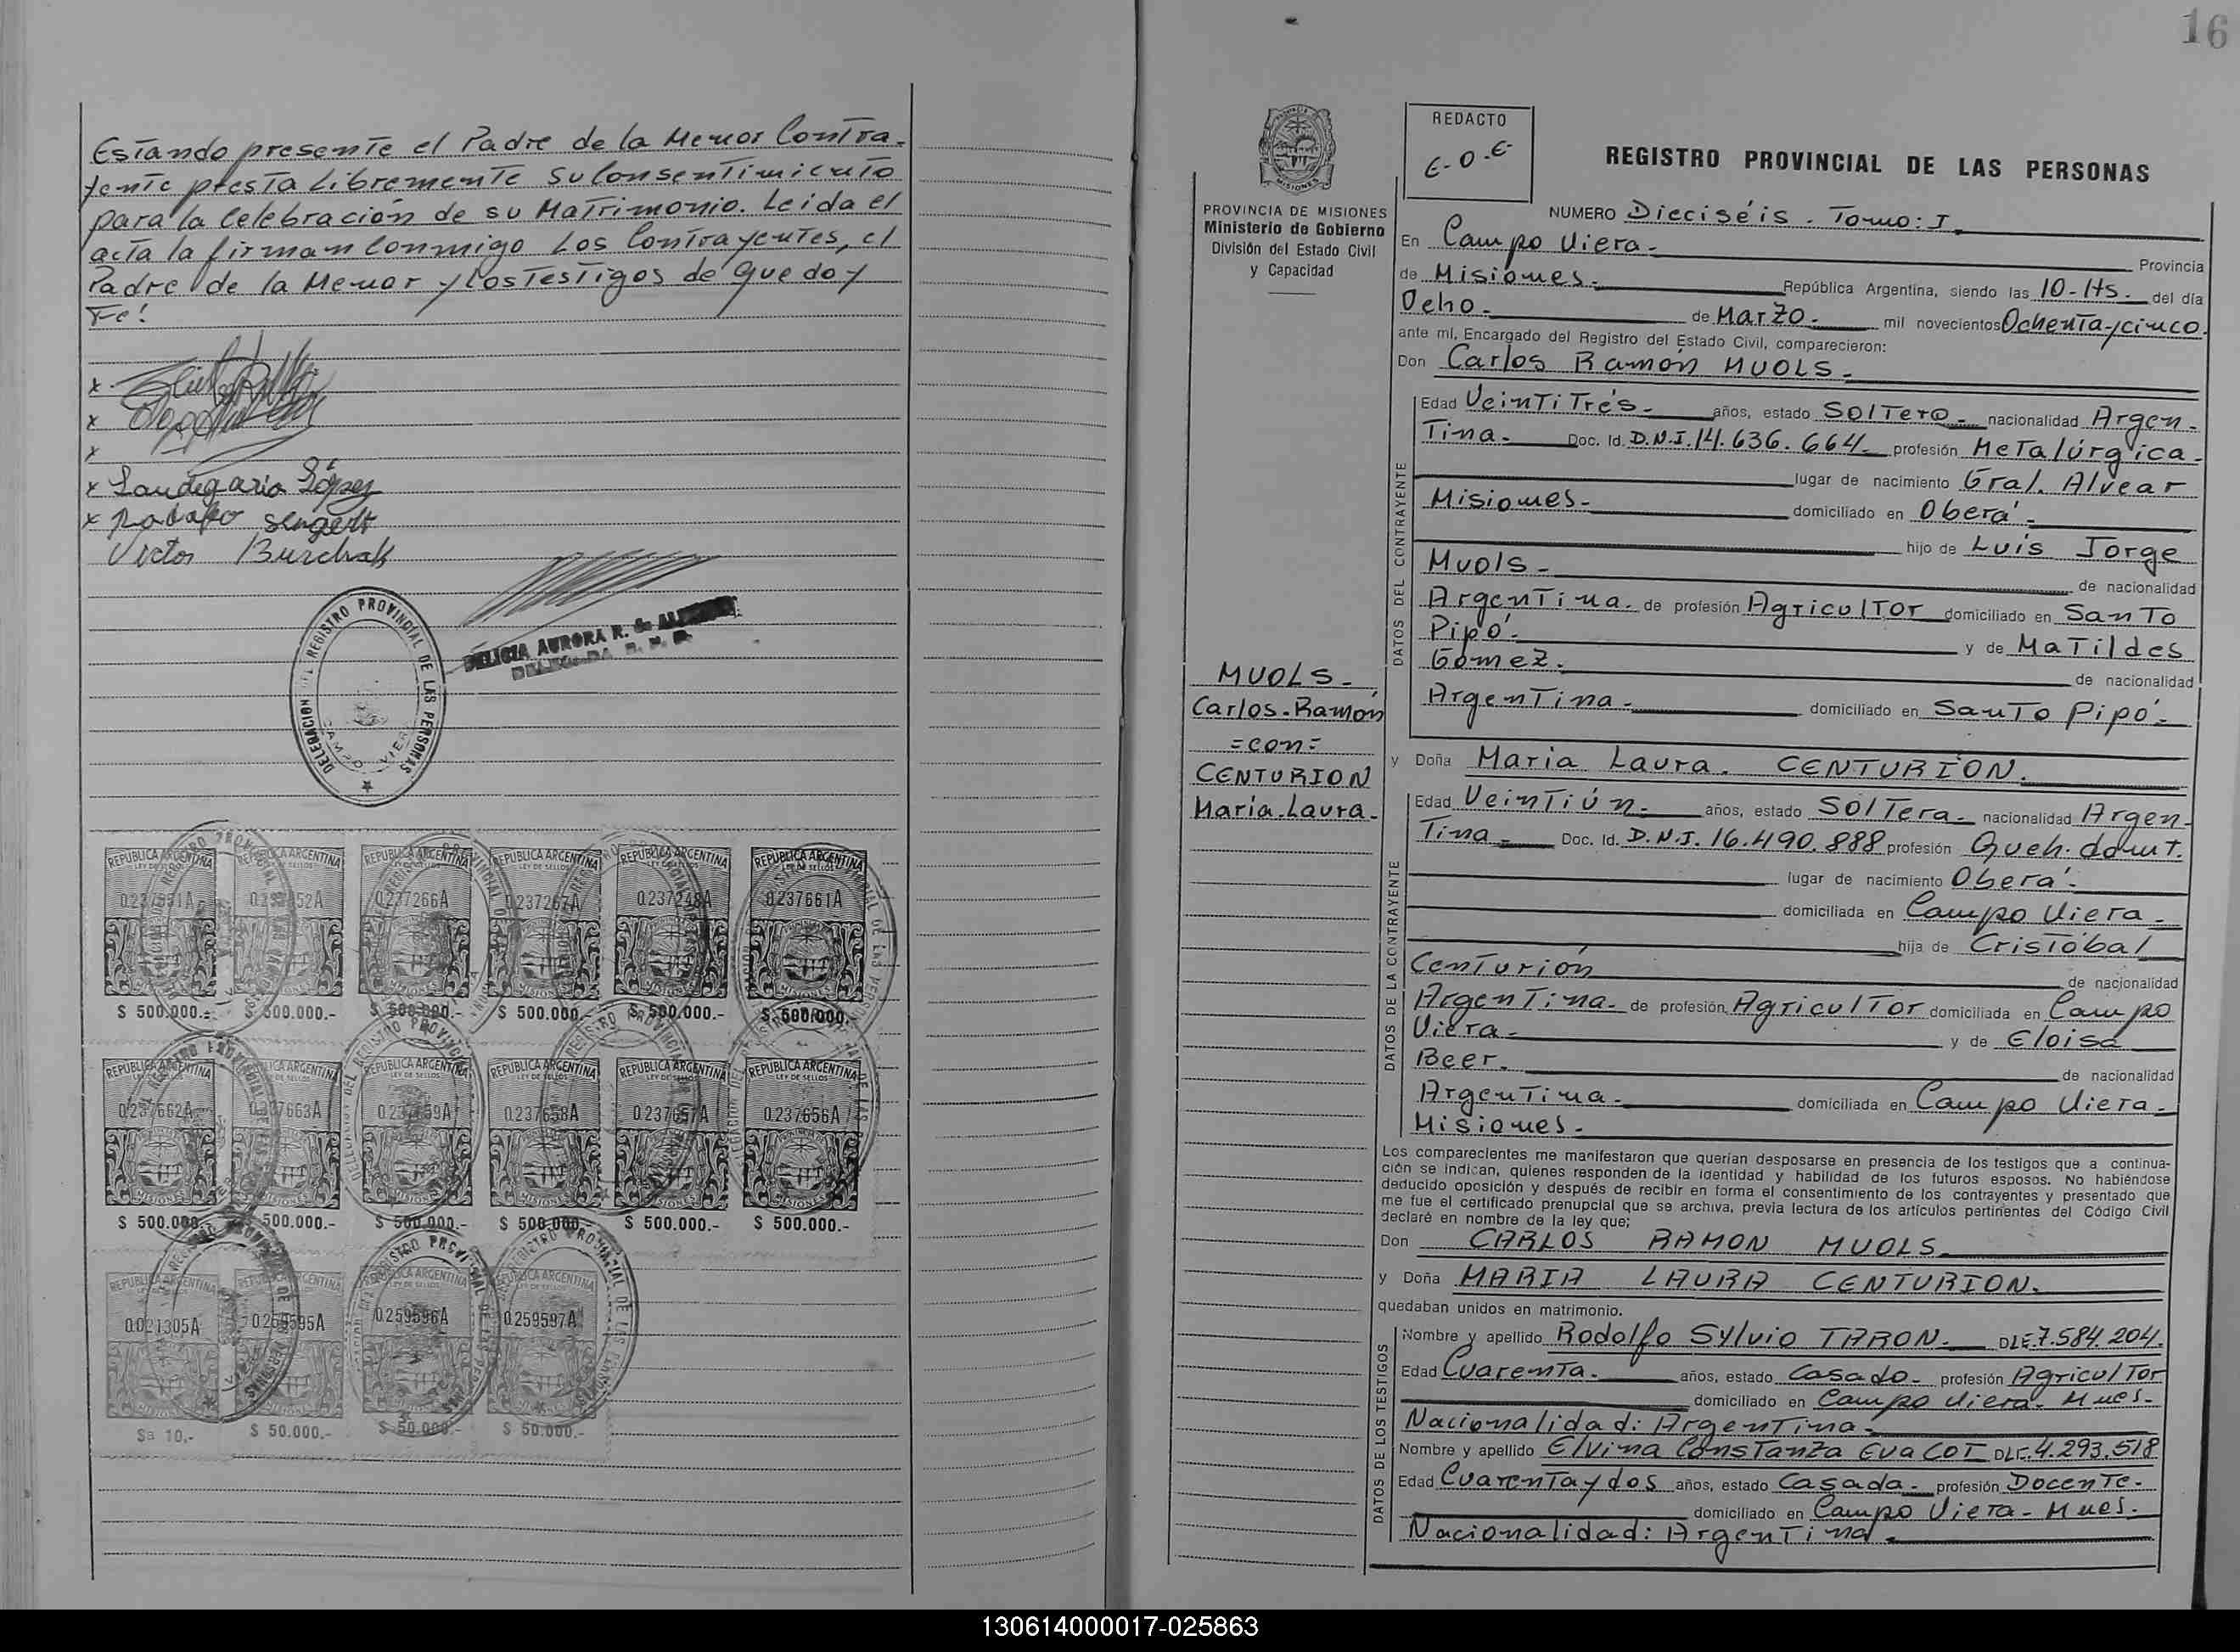 Estando presente el Padre de la Menor Contra-
yente presta Libremente su Consentimiento
para la Celebración de su Matrimonio. Leida el
acta la firman Conmigo Los Contrayentes, el
Padre de la Menor y Los Testigos de que doy
Fe!
x
x
x
x Laudegario López
x Rodolfo Sengert
Victor Burchak
DELEGACION DEL REGISTRO PROVINCIAL DE LAS PERSONAS
CAMPO VIERA
DELICIA AURORA R. de
REPUBLICA ARGENTINA REPUBLICA ARGENTINA REPUBLICA ARGENTINA REPUBLICA ARGENTINA REPUBLICA ARGENTINA REPUBLICA ARGENTINA
LEY DE SELLOS
0.237266A 0.237267A 0.237248A 0.237661A
MISIONES MISIONES MISIONES MISIONES MISIONES MISIONES
$ 500.000.- $ 500.000.- $ 500.000.- $ 500.000.- $ 500.000.- $ 500.000.-
REPUBLICA ARGENTINA REPUBLICA ARGENTINA REPUBLICA ARGENTINA REPUBLICA ARGENTINA REPUBLICA ARGENTINA REPUBLICA ARGENTINA
LEY DE SELLOS
0.237662A 0.237663A 0.237659A 0.237658A 0.237657A 0.237656A
MISIONES MISIONES MISIONES MISIONES MISIONES MISIONES
$ 500.000.- $ 500.000.- $ 500.000.- $ 500.000.- $ 500.000.- $ 500.000.-
REPUBLICA ARGENTINA REPUBLICA ARGENTINA REPUBLICA ARGENTINA REPUBLICA ARGENTINA
0.021305A 0.259595A 0.259596A 0.259597A
$a 10,- $ 50.000.- $ 50.000.- $ 50.000.-
16
PROVINCIA DE MISIONES
Ministerio de Gobierno
División del Estado Civil
y Capacidad
REDACTO
E-O-E-
REGISTRO PROVINCIAL DE LAS PERSONAS
NUMERO Dieciséis. Tomo: I.
En Campo Viera- Provincia
de Misiones- República Argentina, siendo las 10-Hs- del día
Ocho- de Marzo- mil novecientos Ochenta y cinco.
ante mí, Encargado del Registro del Estado Civil, comparecieron:
Don Carlos Ramón MUOLS-
MUOLS-
Carlos-Ramón
=con=
CENTURION
María-Laura-
DATOS DEL CONTRAYENTE
Edad Veintitrés- años, estado Soltero- nacionalidad Argen-
tina- Doc. Id. D.N.I. 14.636.664- profesión Metalúrgica-
lugar de nacimiento Gral. Alvear
Misiones- domiciliado en Oberá-
hijo de Luís Jorge
Muols- de nacionalidad
Argentina- de profesión Agricultor domiciliado en Santo
Pipó- y de Matildes
Gómez. de nacionalidad
Argentina- domiciliado en Santo Pipó-
y Doña Maria Laura. CENTURIÓN.
DATOS DE LA CONTRAYENTE
Edad Veintiún- años, estado Soltera- nacionalidad Argen-
tina- Doc. Id. D.N.I. 16.490.888 profesión Queh. domt.
lugar de nacimiento Oberá-
domiciliada en Campo Viera-
hija de Cristóbal
Centurión de nacionalidad
Argentina- de profesión Agricultor domiciliada en Campo
Viera- y de Eloisa
Beer. de nacionalidad
Argentina- domiciliada en Campo Viera-
Misiones-
Los comparecientes me manifestaron que querían desposarse en presencia de los testigos que a continua-
ción se indican, quienes responden de la identidad y habilidad de los futuros esposos. No habiéndose
deducido oposición y después de recibir en forma el consentimiento de los contrayentes y presentado que
me fue el certificado prenupcial que se archiva, previa lectura de los artículos pertinentes del Código Civil
declaré en nombre de la ley que;
Don CARLOS RAMON MUOLS-
y Doña MARIA LAURA CENTURION.
quedaban unidos en matrimonio.
DATOS DE LOS TESTIGOS
Nombre y apellido Rodolfo Sylvio TARON- DLE.7.584.204.
Edad Cuarenta- años, estado Casado- profesión Agricultor
domiciliado en Campo Viera- Mnes-
Nacionalidad: Argentina-
Nombre y apellido Elvina Constanza Eva COT DLE.4.293.518
Edad Cuarenta y dos años, estado Casada- profesión Docente-
domiciliado en Campo Viera- Mnes-
Nacionalidad: Argentina-
130614000017-025863